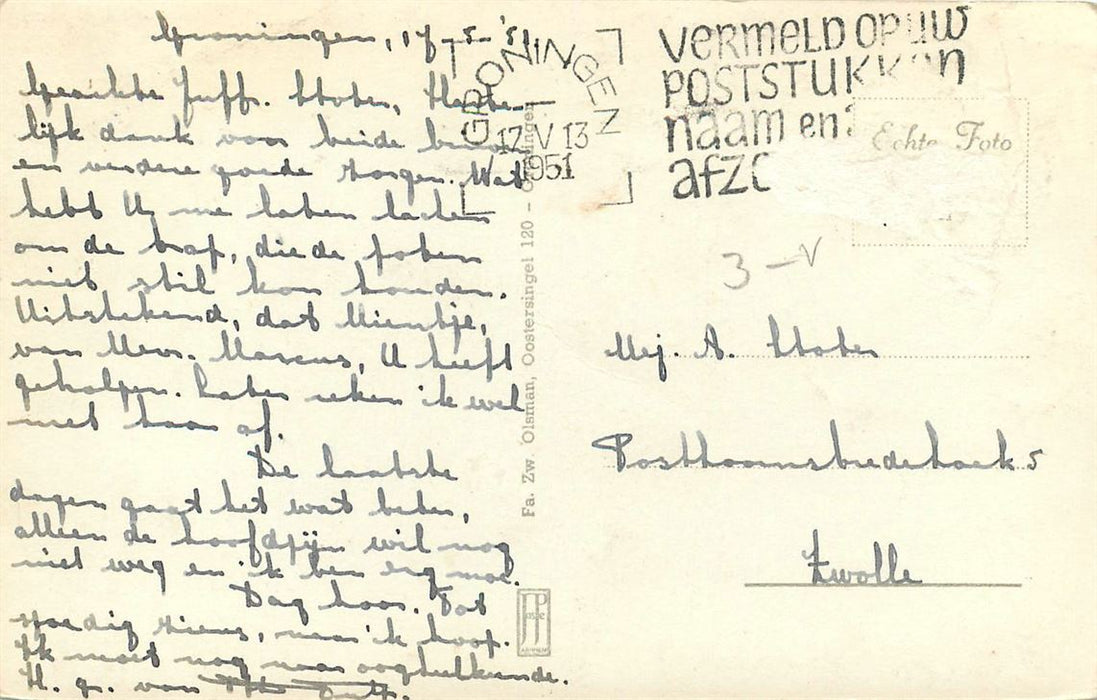 Groningen, 17-5-'51
Geachte Juff. Stoter, Harte-
lijk dank voor beide
en verdere goede zorgen. Wat
hebt U me laten lachen
om de trap, die de poten
niet stil kon houden.
Uitstekend, dat Mientje,
van Mevr. Marcus, U heeft
geholpen. Later reken ik wel
met haar af.
De laatste
dagen gaat het wat beter,
alleen de hoofdpijn wil nog
niet weg en ik ben erg moe.
Dag hoor. Tot
spoedig ziens, naar ik hoop.
Ik moet nog naar oogheelkunde.
H. gr. van
Fa. Zw. Olsman, Oostersingel 120 - Groningen
JP
GRONINGEN
17 V 13
1951
VERMELD OP UW
POSTSTUKKEN
naam en
afze
Echte Foto
3 - V
Mej. A. Stoter
Posthoornsbredehoek 5
Zwolle